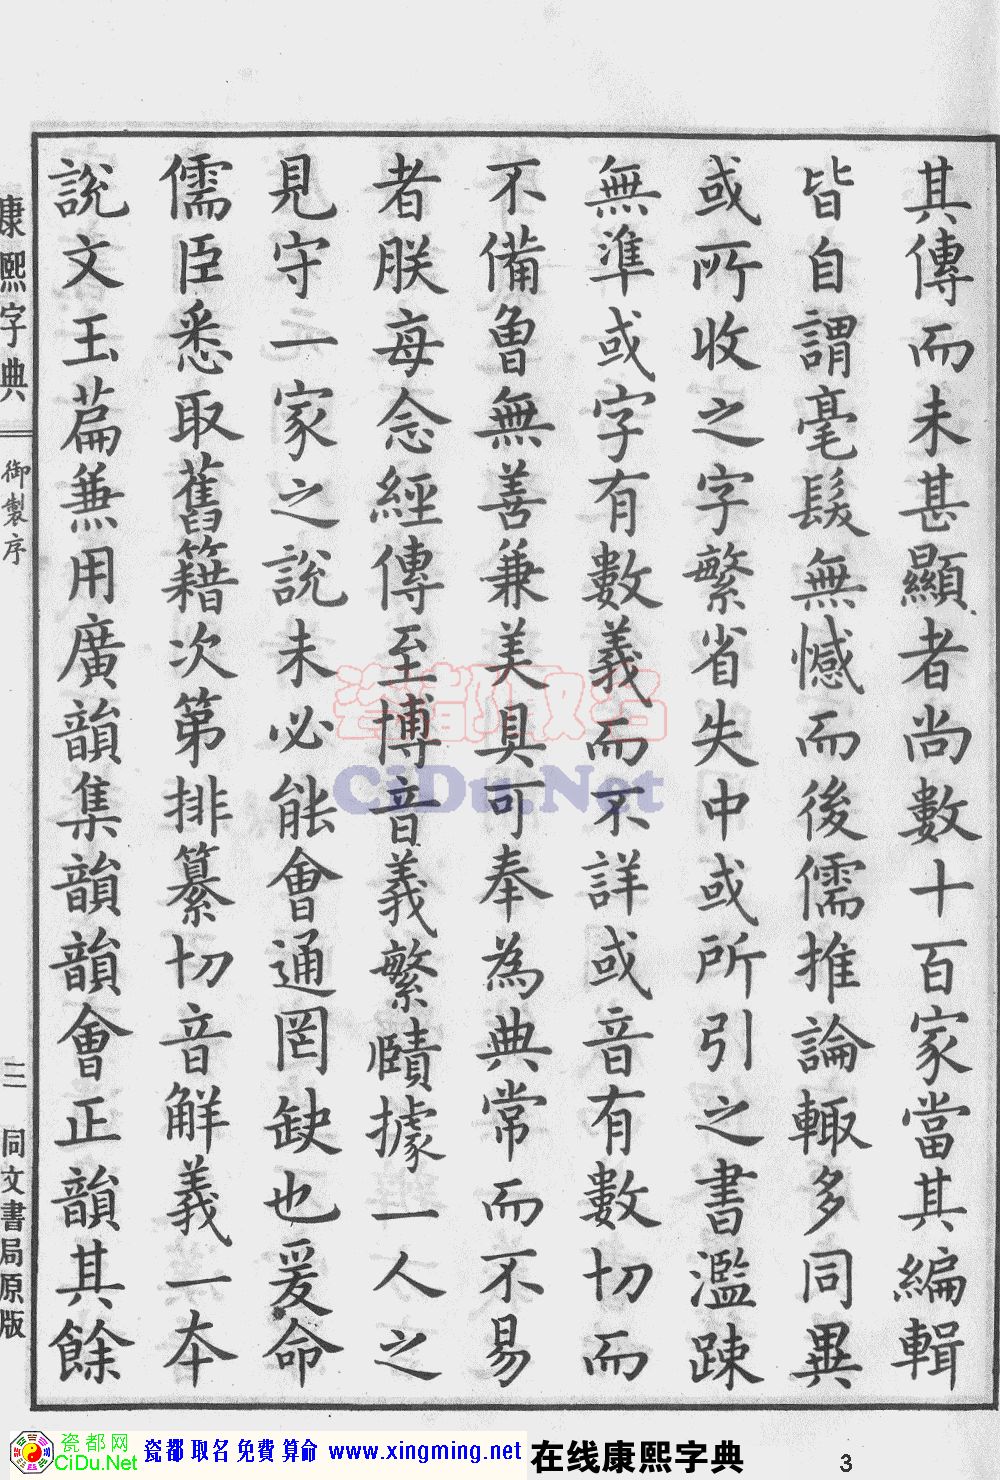 其傳而未甚顯者尚數十百家當其編輯
皆自謂毫髮無憾而後儒推論輙多同異
或所收之字繁省失中或所引之書濫踈
無準或字有數義而不詳或音有數切而
不備曾無善兼美具可奉為典常而不易
者朕每念經傳至博音義繁賾據一人之
見守一家之說未必能會通罔缺也爰命
儒臣悉取舊籍次第排纂切音解義一本
說文玉篇兼用廣韻集韻韻會正韻其餘
康熙字典 御製序 三 同文書局原版
瓷都取名
CiDu.Net
瓷都网
CiDu.Net
瓷都取名免費算命 www.xingming.net
在线康熙字典
3